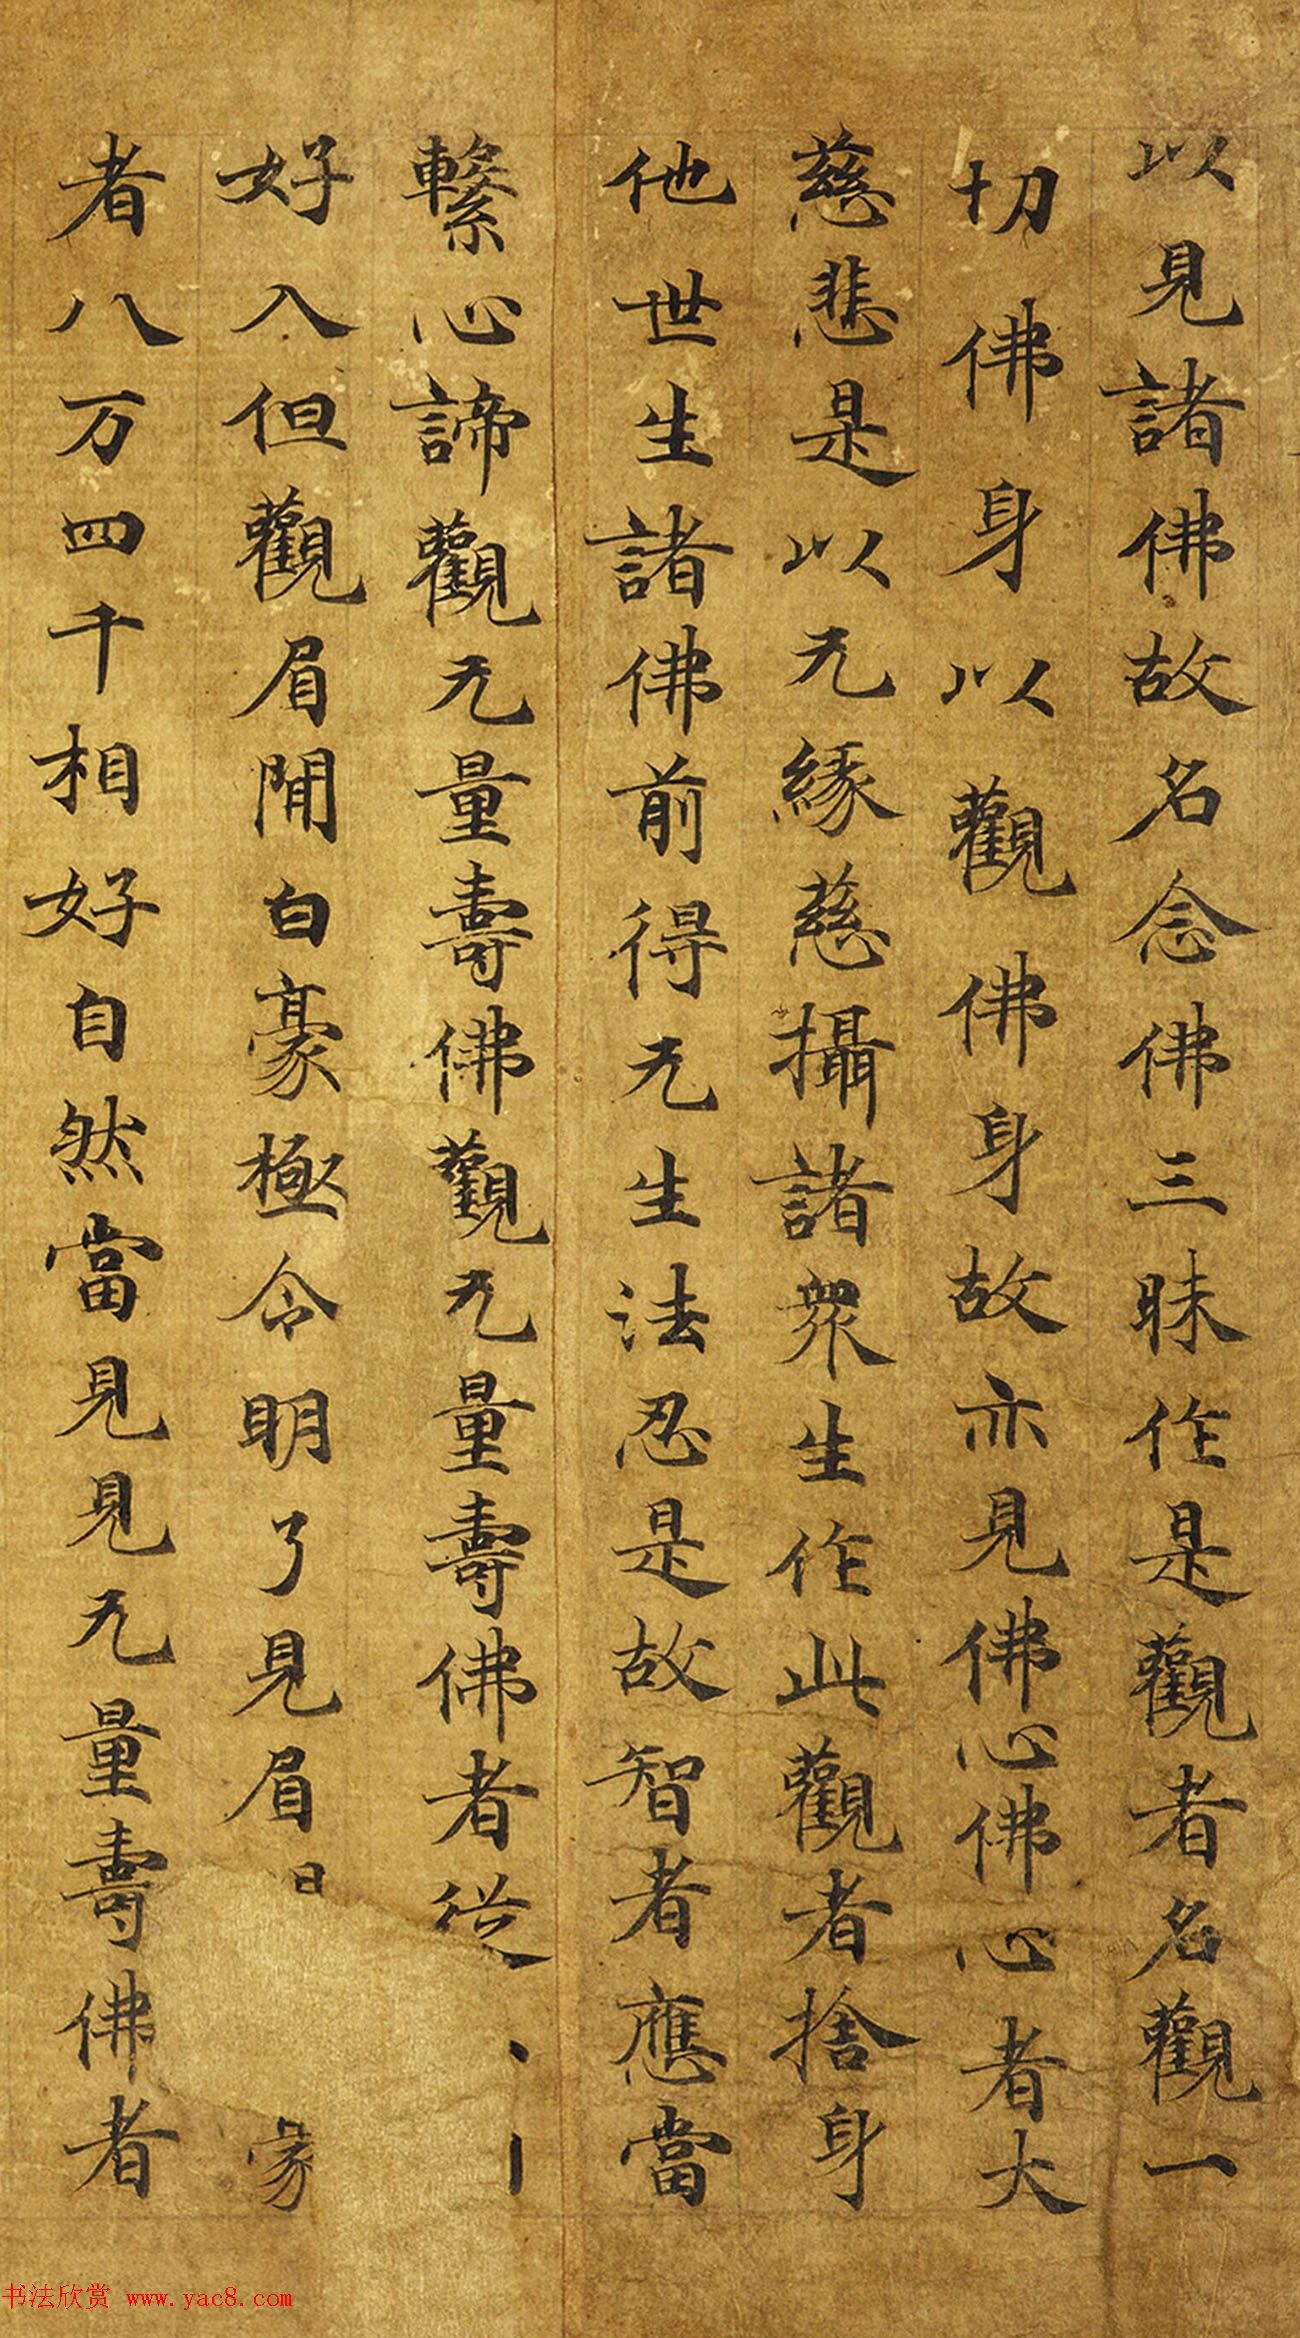 以見諸佛故名念佛三昧作是觀者名觀一
切佛身以觀佛身故亦見佛心佛心者大
慈悲是以无緣慈攝諸眾生作此觀者捨身
他世生諸佛前得无生法忍是故智者應當
繫心諦觀无量壽佛觀无量壽佛者從
好入但觀眉閒白豪極令明了見眉
者八万四千相好自然當見見无量壽佛者
书法欣赏 www.yac8.com